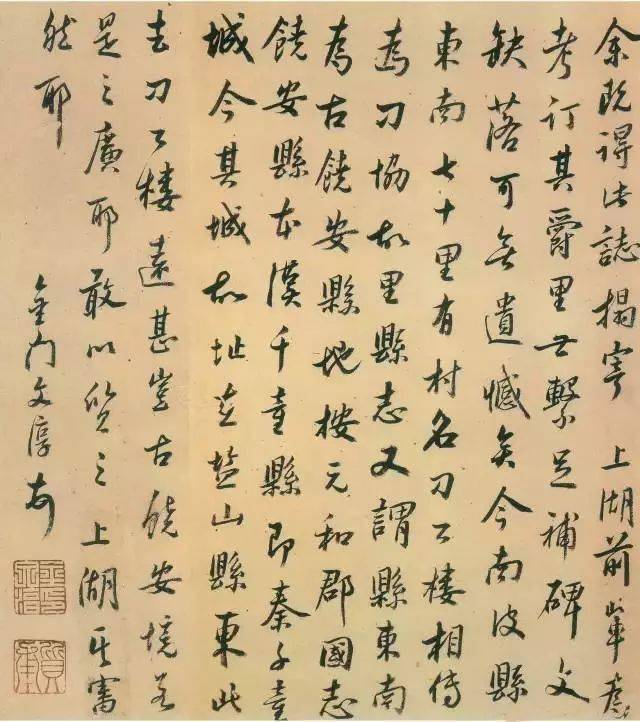 余既得此誌搨寄 上湖前輩爲
考訂其爵里世繫足補碑文
缺落可無遺憾矣今南皮縣
東南七十里有村名刁公樓相傳
爲刁協故里縣志又謂縣東南
爲古饒安縣地按元和郡國志
饒安縣本漢千童縣即秦千童
城今其城故址在鹽山縣東北
去刁公樓遠甚豈古饒安境若
是之廣耶敢以質之 上湖其審
然耶
金門文淳